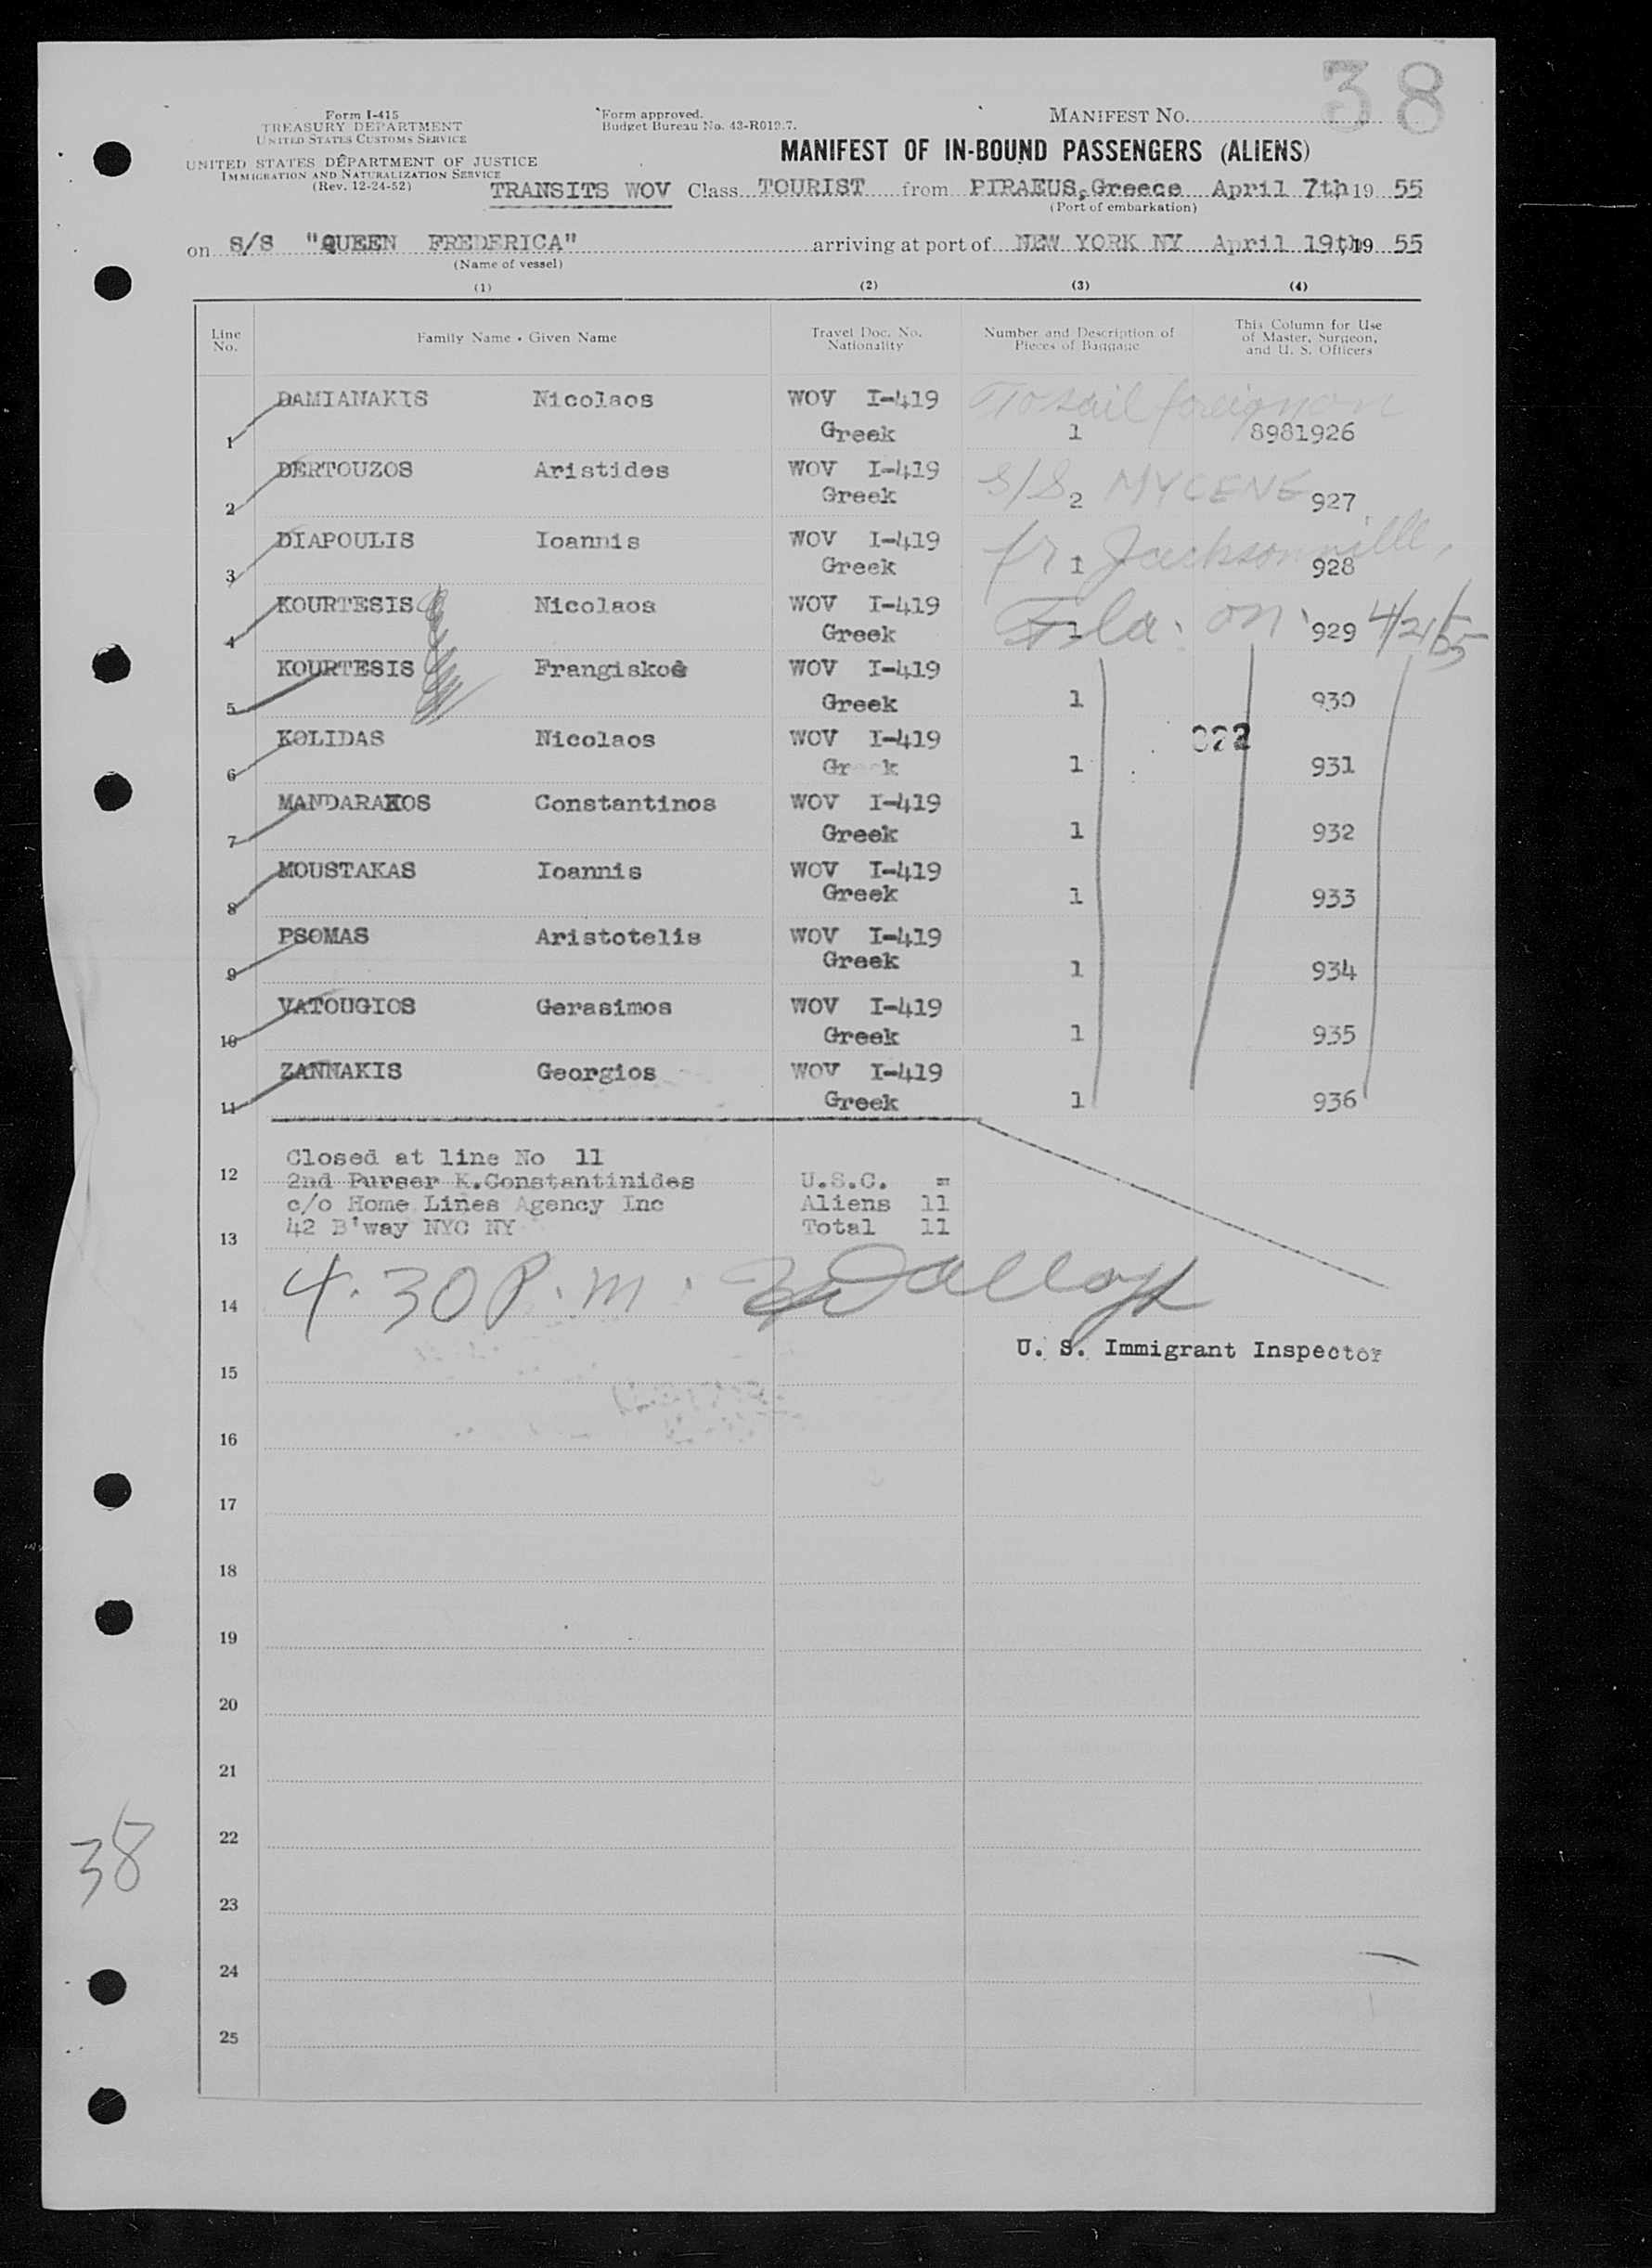 38
Form I-415
TREASURY DEPARTMENT
UNITED STATES CUSTOMS SERVICE
Form approved.
Budget Bureau No. 43-R019.7.
MANIFEST NO.
UNITED STATES DEPARTMENT OF JUSTICE
IMMIGRATION AND NATURALIZATION SERVICE
(Rev. 12-24-52)
MANIFEST OF IN-BOUND PASSENGERS (ALIENS)
TRANSITS WOV Class TOURIST from PIRAEUS, Greece April 7th 19 55
(Port of embarkation)
on S/S "QUEEN FREDERICA" arriving at port of NEW YORK NY April 19th 19 55
(Name of vessel)
(1) (2) (3) (4)
Line No. Family Name • Given Name Travel Doc. No. Nationality Number and Description of Pieces of Baggage This Column for Use of Master, Surgeon, and U. S. Officers
DAMIANAKIS Nicolaos WOV I-419 To sail foreign on
1 Greek 1 8981926
DERTOUZOS Aristides WOV I-419 S/S MYCENE
2 Greek 2 927
DIAPOULIS Ioannis WOV I-419 fr Jacksonville,
3 Greek 1 928
KOURTESIS Nicolaos WOV I-419 Fla. on 4/21/55
4 Greek 1 929
KOURTESIS Frangiskos WOV I-419
5 Greek 1 930
KOLIDAS Nicolaos WOV I-419 022
6 Greek 1 931
MANDARAKOS Constantinos WOV I-419
7 Greek 1 932
MOUSTAKAS Ioannis WOV I-419
8 Greek 1 933
PSOMAS Aristotelis WOV I-419
9 Greek 1 934
VATOUGIOS Gerasimos WOV I-419
10 Greek 1 935
ZANNAKIS Georgios WOV I-419
11 Greek 1 936
Closed at line No 11
12 2nd Purser K.Constantinides U.S.C. =
c/o Home Lines Agency Inc Aliens 11
13 42 B'way NYC NY Total 11
14 4.30 P.m.
U. S. Immigrant Inspector
15
16
17
18
19
20
21
22
38
23
24
25